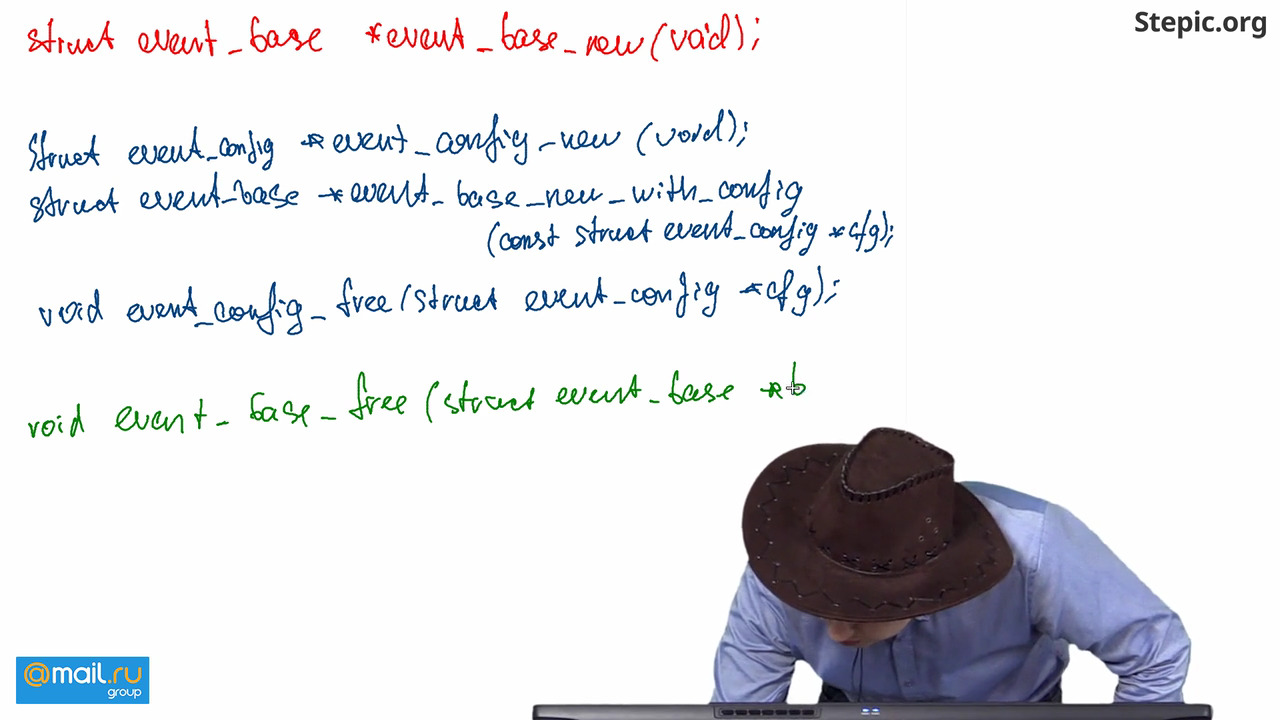 struct event_base *event_base_new(void);
Stepic.org
Struct event_config *event_config_new (void);
struct event_base *event_base_new_with_config
(const struct event_config *cfg);
void event_config_free(struct event_config *cfg);
void event_base_free (struct event_base *b
@mail.ru
group